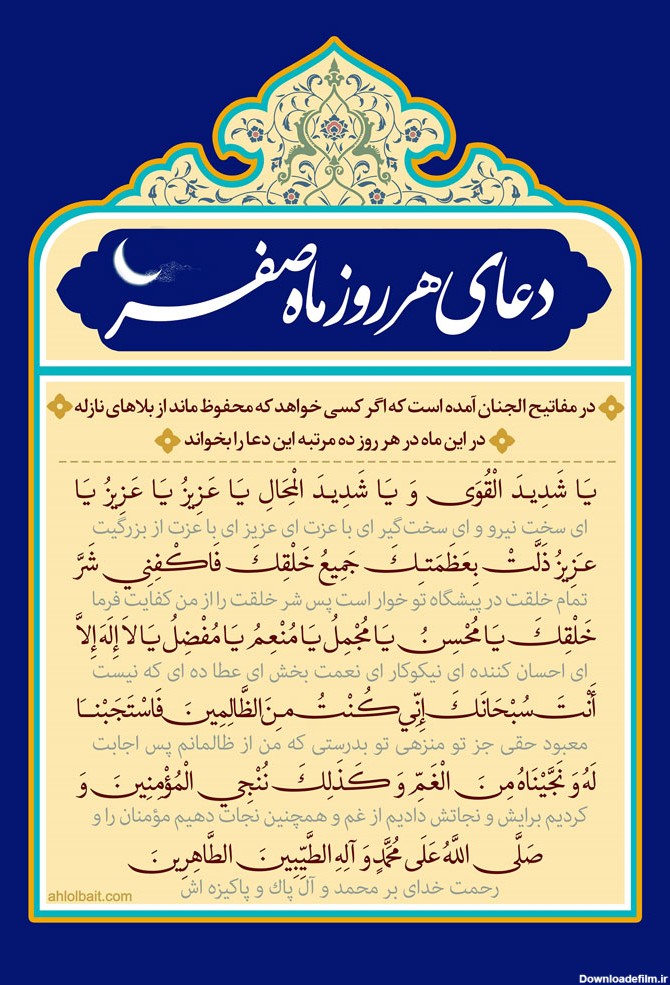 دعای هر روز ماه صفر
در مفاتیح الجنان آمده است که اگر کسی خواهد که محفوظ ماند از بلاهای نازله
در این ماه در هر روز ده مرتبه این دعا را بخواند
یَا شَدِیدَ الْقُوَی وَ یَا شَدِیدَ الْمِحَالِ یَا عَزِیزُ یَا عَزِیزُ یَا
ای سخت نیرو و ای سخت‌گیر ای با عزت ای عزیز ای با عزت از بزرگیت
عَزِیزُ ذَلَّتْ بِعَظَمَتِكَ جَمِیعُ خَلْقِكَ فَاكْفِنِي شَرَّ
تمام خلقت در پیشگاه تو خوار است پس شر خلقت را از من کفایت فرما
خَلْقِكَ یَا مُحْسِنُ یَا مُجْمِلُ یَا مُنْعِمُ یَا مُفْضِلُ یَا لاَ إِلَهَ إِلاَّ
ای احسان کننده ای نیکوکار ای نعمت بخش ای عطا ده ای که نیست
أَنْتَ سُبْحَانَكَ إِنِّي كُنْتُ مِنَ الظَّالِمِینَ فَاسْتَجَبْنَا
معبود حقی جز تو منزهی تو بدرستی که من از ظالمانم پس اجابت
لَهُ وَ نَجَّیْنَاهُ مِنَ الْغَمِّ وَ كَذَلِكَ نُنْجِي الْمُؤْمِنِینَ وَ
کردیم برایش و نجاتش دادیم از غم و همچنین نجات دهیم مؤمنان را و
صَلَّی اللَّهُ عَلَی مُحَمَّدٍ وَ آلِهِ الطَّیِّبِینَ الطَّاهِرِینَ
رحمت خدای بر محمد و آل پاك و پاکیزه اش
ahlolbait.com
Downloadefilm.ir